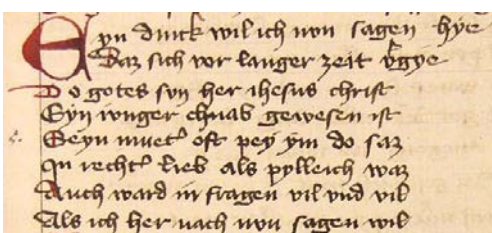 Eyn dinck wil ich nvn sagen hye
Daz sich vor langer zeit v̾gye
Do gotes svn her ihesus christ
Eyn ivnger chnab gewesen ist
Seyn muet̾ oft pey ym do saz
In recht̾ lieb als pylleich waz
Auch ward in fragen vil vnd vil
Als ich her nach nvn sagen wil